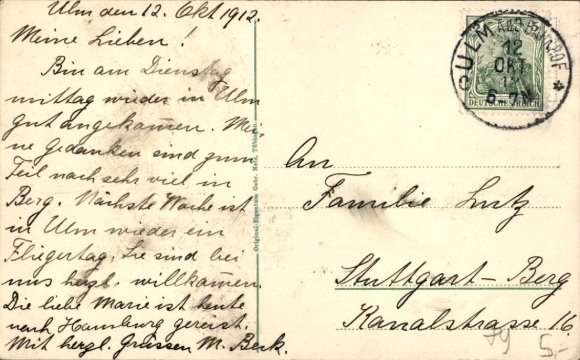 Ulm den 12. Okt 1912.
Meine Lieben!
Bin am Dienstag
mittag wieder in Ulm
gut angekom̅en. Mei-
ne Gedanken sind zum
Teil noch sehr viel in
Berg. Nächste Woche ist
in Ulm wieder ein
Fliegertag. Sie sind bei
uns herzl. willkom̅en.
Die liebe Marie ist heute
nach Hamburg gereist.
Mit herzl. Grüssen M. Beck.
Original-Eigentum Gebr. Metz, Tübingen.
ULM
12
OKT
12
6-7N
DEUTSCHES REICH
An
Familie Lutz
Stuttgart-Berg
Kanalstrasse 16.
79
5,-